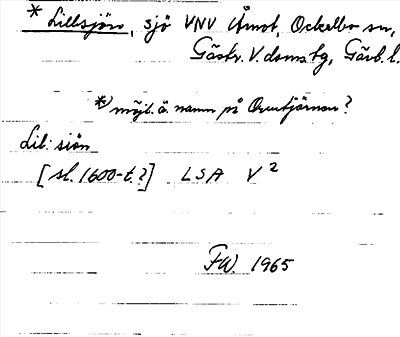 * Lillsjön, sjö VNV Åmot, Ockelbo sn,
Gästr. V. doms.tg, Gävl. l.
*) möjl. ä. namn på Orrtjärnen?
Lil: siön
[sl. 1600-t.?] LSA V 2
FW. 1965